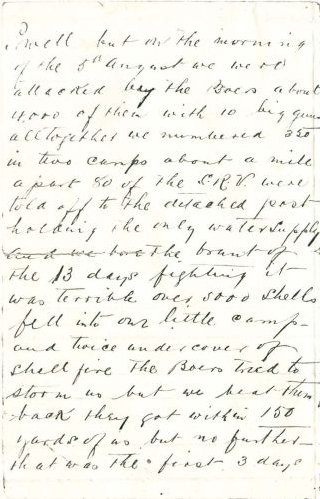 swell but on the morning
of the 5th August we were
attacked by the Boers about
4,000 of them with 10 big guns
alltogether we numbered 350
in two camps about a mile
apart 80 of the S.R.V. were
told off to the detached post
holding the only water supply
and we bore the brunt of
the 13 days fighting it
was terrible over 3000 shells
fell into our little camp -
and twice under cover of
shell fire the Boers tried to
storm us but we beat them
back they got within 150
yards of us but no further
that was the first 3 days